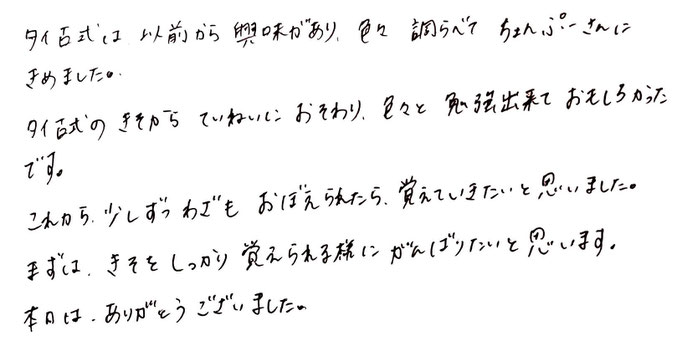 タイ古式は、以前から興味があり、色々調らべてちぇんぷーさんに
きめました。
タイ古式のきそからていねいにおそわり、色々と勉強出来ておもしろかった
です。
これから、少しずつわざもおぼえられたら、覚えていきたいと思いました。
まずは、きそをしっかり覚えられる様にがんばりたいと思います。
本日は、ありがとうございました。